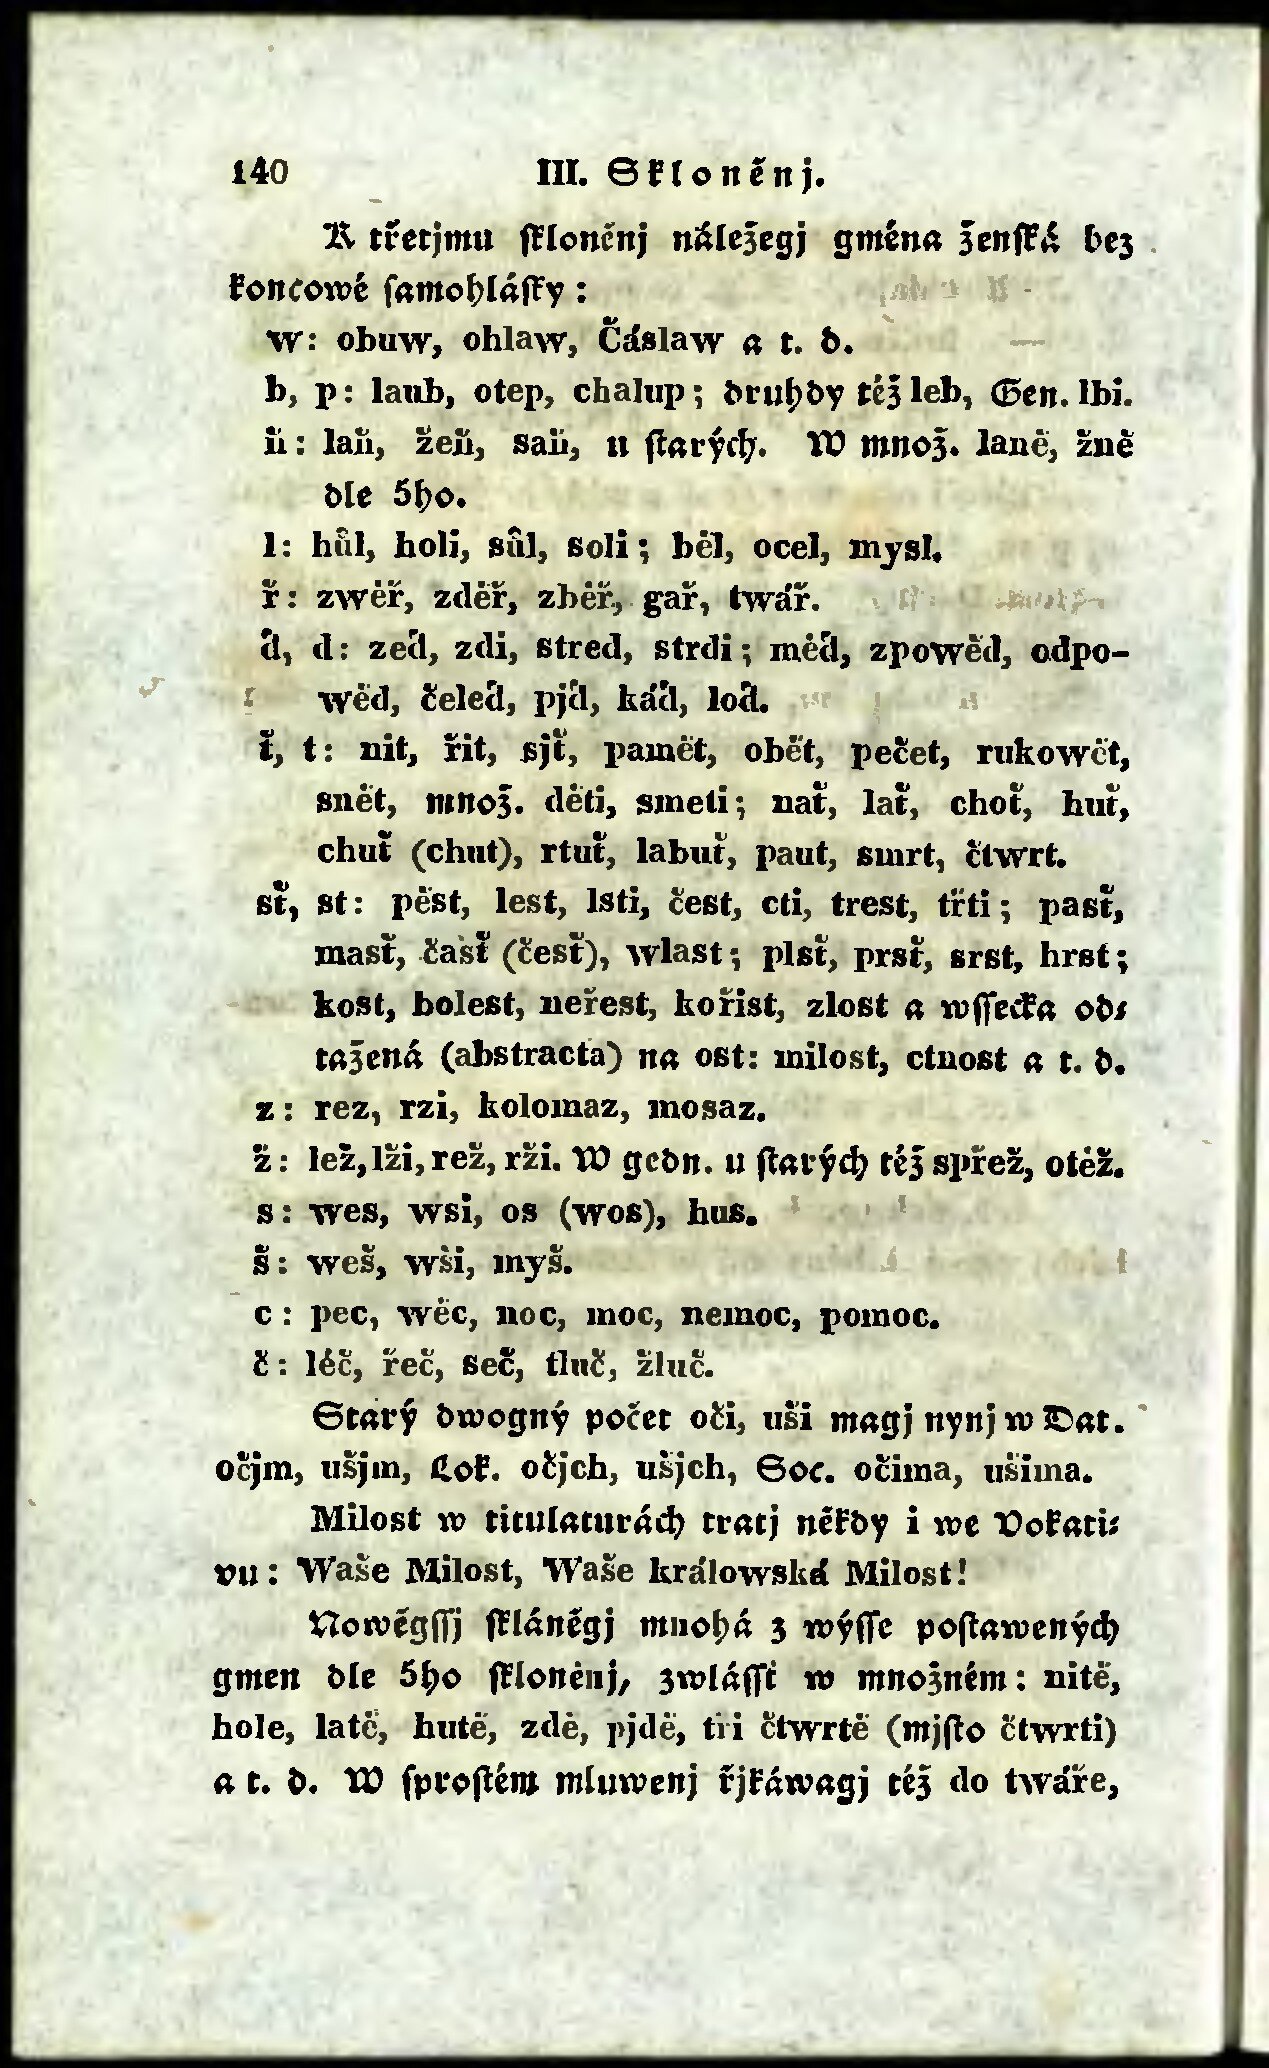 140 III. Skloněnj.
K třetjmu skloněnj náležegj gména ženská bez
koncowé samohlásky:
w: obuw, ohlaw, Čáslaw a t. d.
b, p: laub, otep, chalup; druhdy též leb, Gen. lbi.
ň: laň, žeň, saň, u starých. W množ. laně, žně
dle 5ho.
l: hůl, holi, sůl, soli; běl, ocel, mysl.
ř: zwěř, zděř, zběř, gař, twář.
ď, d: zeď, zdi, stred, strdi; měď, zpowěd, odpo-
wěd, čeleď, pjď, káď, loď.
ť, t: nit, řit, sjť, pamět, obět, pečet, rukowět,
snět, množ. děti, smeti; nať, lať, choť, huť,
chuť (chut), rtuť, labuť, paut, smrt, čtwrt.
sť, st: pěst, lest, lsti, čest, cti, trest, třti; pasť,
masť, časť (česť), wlast; plsť, prsť, srst, hrst;
kost, bolest, neřest, kořist, zlost a wssecka od-
tažená (abstracta) na ost: milost, ctnost a t. d.
z: rez, rzi, kolomaz, mosaz.
ž: lež, lži, rež, rži. W gedn. u starých též spřež, otěž.
s: wes, wsi, os (wos), hus.
š: weš, wši, myš.
c: pec, wěc, noc, moc, nemoc, pomoc.
č: léč, řeč, seč, tluč, žluč.
Starý dwogný počet oči, uši magj nynj w Dat.
očjm, ušjm, Lok. očjch, ušjch, Soc. očima, ušima.
Milost w titulaturách tratj někdy i we Vokati-
vu: Waše Milost, Waše králowská Milost!
Nowěgssj skláněgj mnohá z wýsse postawených
gmen dle 5ho skloněnj, zwlásstě w množném: nitě,
hole, latě, hutě, zdě, pjdě, tři čtwrtě (mjsto čtwrti)
a t. d. W sprostém mluwenj řjkáwagj též do twáře,